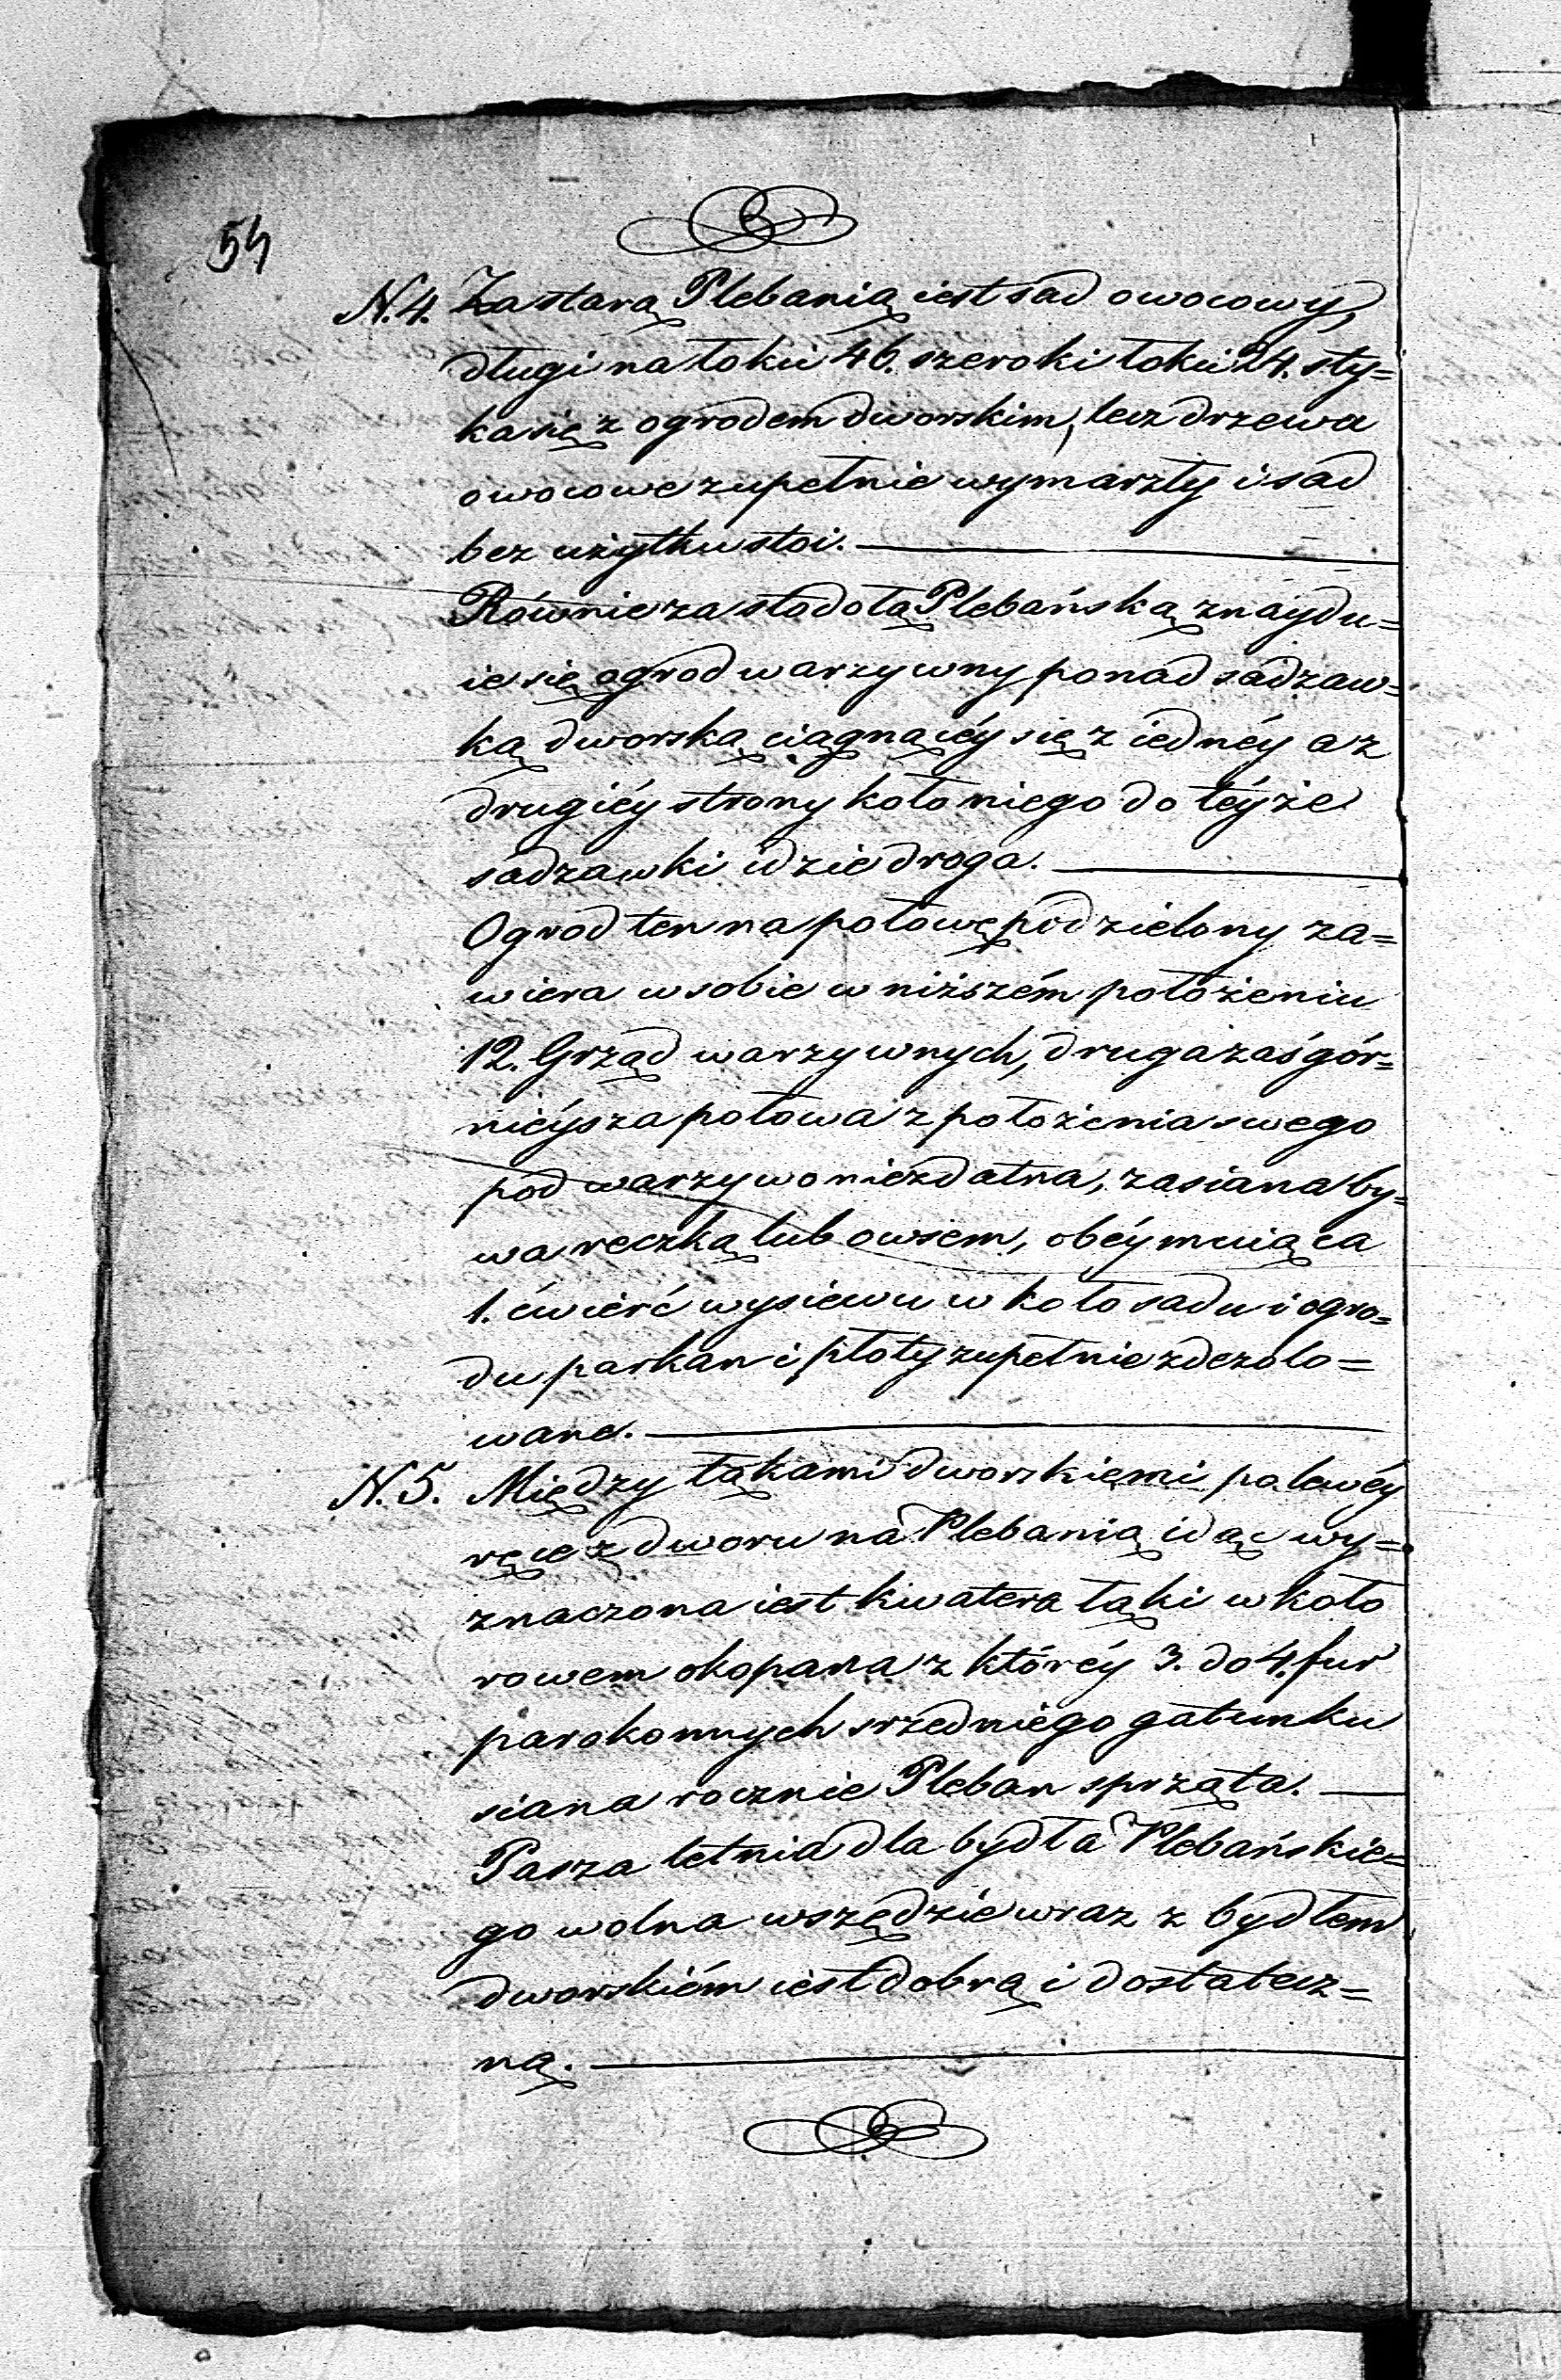 54
N. 4. Za starą Plebanią iest sad owocowy,
długi na łokci 46. szeroki łokci 24. sty=
ka się z ogrodem dworskim, lecz drzewa
owocowe zupełnie wymarzły i sad
bez użytku stoi.
Równie za stodołą Plebańską znaydu=
ie się ogrod warzywny ponad sadzaw=
ką dworską ciągnącéy się z iednéy a z
drugiéy strony koło niego do téyże
sadzawki idzie droga.
Ogrod ten na połowę podzielony za=
wiera w sobie w niższém położeniu
12. Grząd warzywnych, druga zaś gór=
nieysza połowa z położenia swego
pod warzywo niezdatna, zasiana by=
wa reczką lub owsem, obéymuiąca
1. ćwierć wysiewu w koło sadu i ogro=
du parkan i płoty zupełnie zdezolo=
wane.
N. 5. Między łąkami dworskiemi po lewéy
ręce z dworu na Plebanią idąc wy=
znaczona iest kwatera łąki w koło
rowem okopana z któréy 3. do 4. fur
parokonnych srzedniego gatunku
siana rocznie Pleban sprząta.
Pasza letnia dla bydła Plebańskie=
go wolna wszędzie wraz z bydłem
dworskiém iest dobrą i dostatecz=
ną.